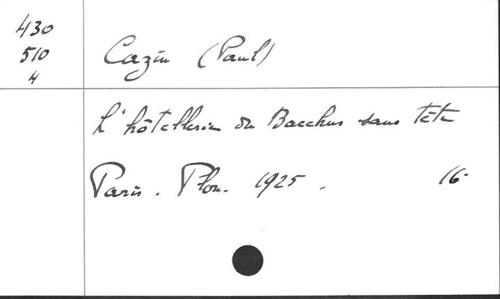 430
510
4
Cazin (Paul)
L'hôtellerie du Bacchus sans tête
Paris. Plon. 1925. 16°